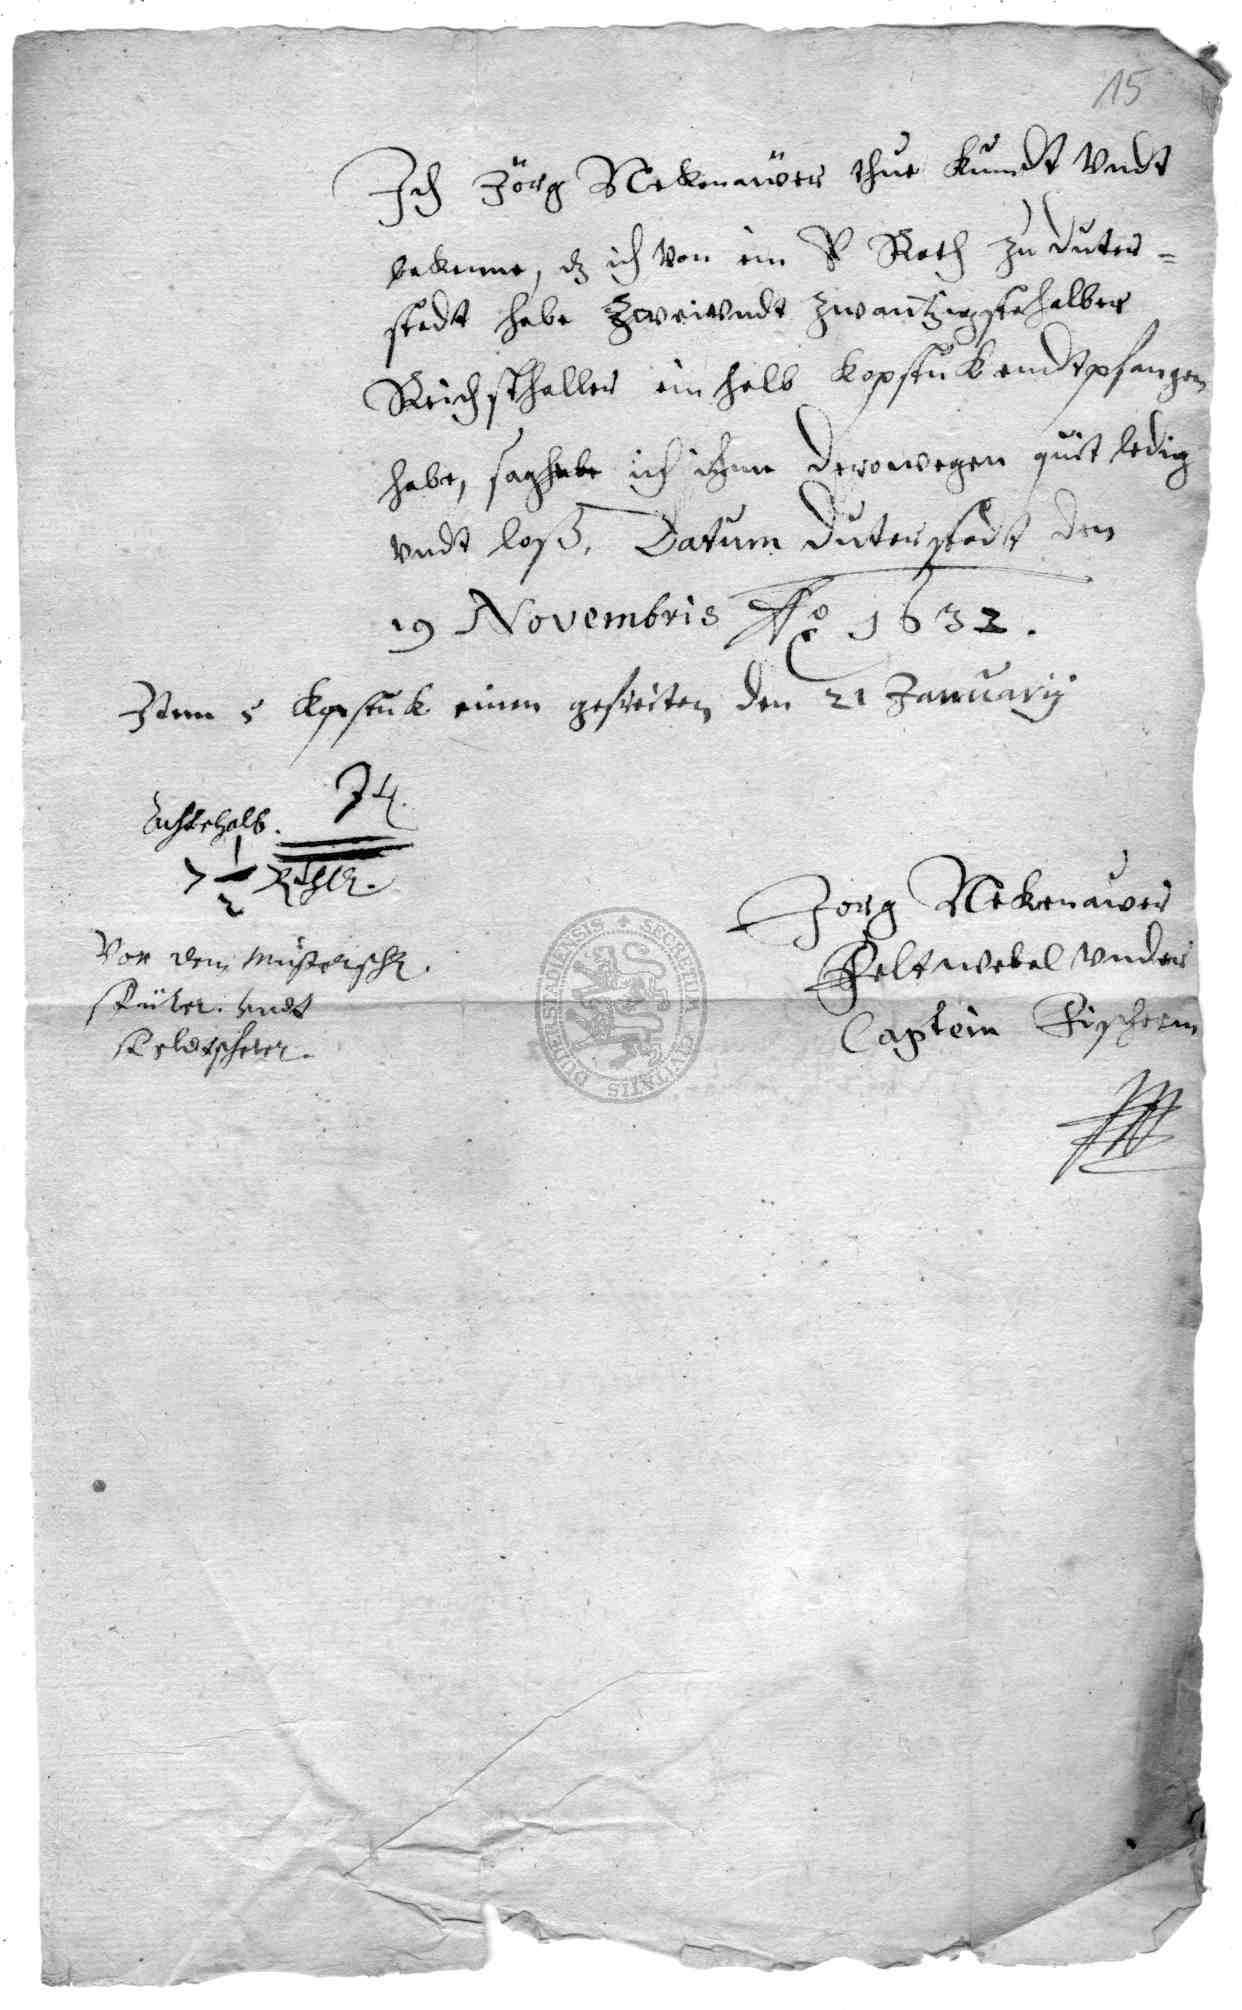 15
Ich Jörg Nekenauwer thue kundt vndt
bekenne, dz ich von ein Rath zu duter=
stadt habe zweivndt zwantzigstehalber
Reichsthaller ein halb kopstuk endtpfangen
habe, sag ich ihme derowegen quit ledig
vndt loß, Datum duterstadt den
19 Novembris Ao 1632.
Item 5 kopstuk einen gefreiten den 21 Januarij
74.
Achtehalb.
7 1/2 Rthlr.
Vor den Musterschr.
vndt
feldtscherer.
Jorg Nekenauwer
Feltwebel vnder
Captein Fischern
SECRETUM CIVITATIS DUDERSTADIENSIS